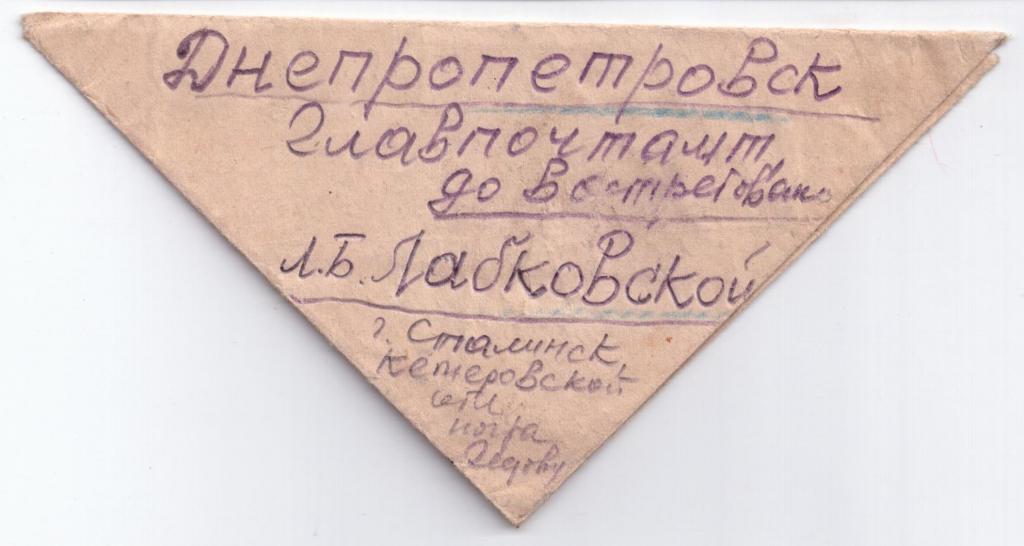 Днепропетровск
Главпочтамт,
до востребовано
Л.Б. Лабковской
г. Сталинск,
Кемеровской
почта